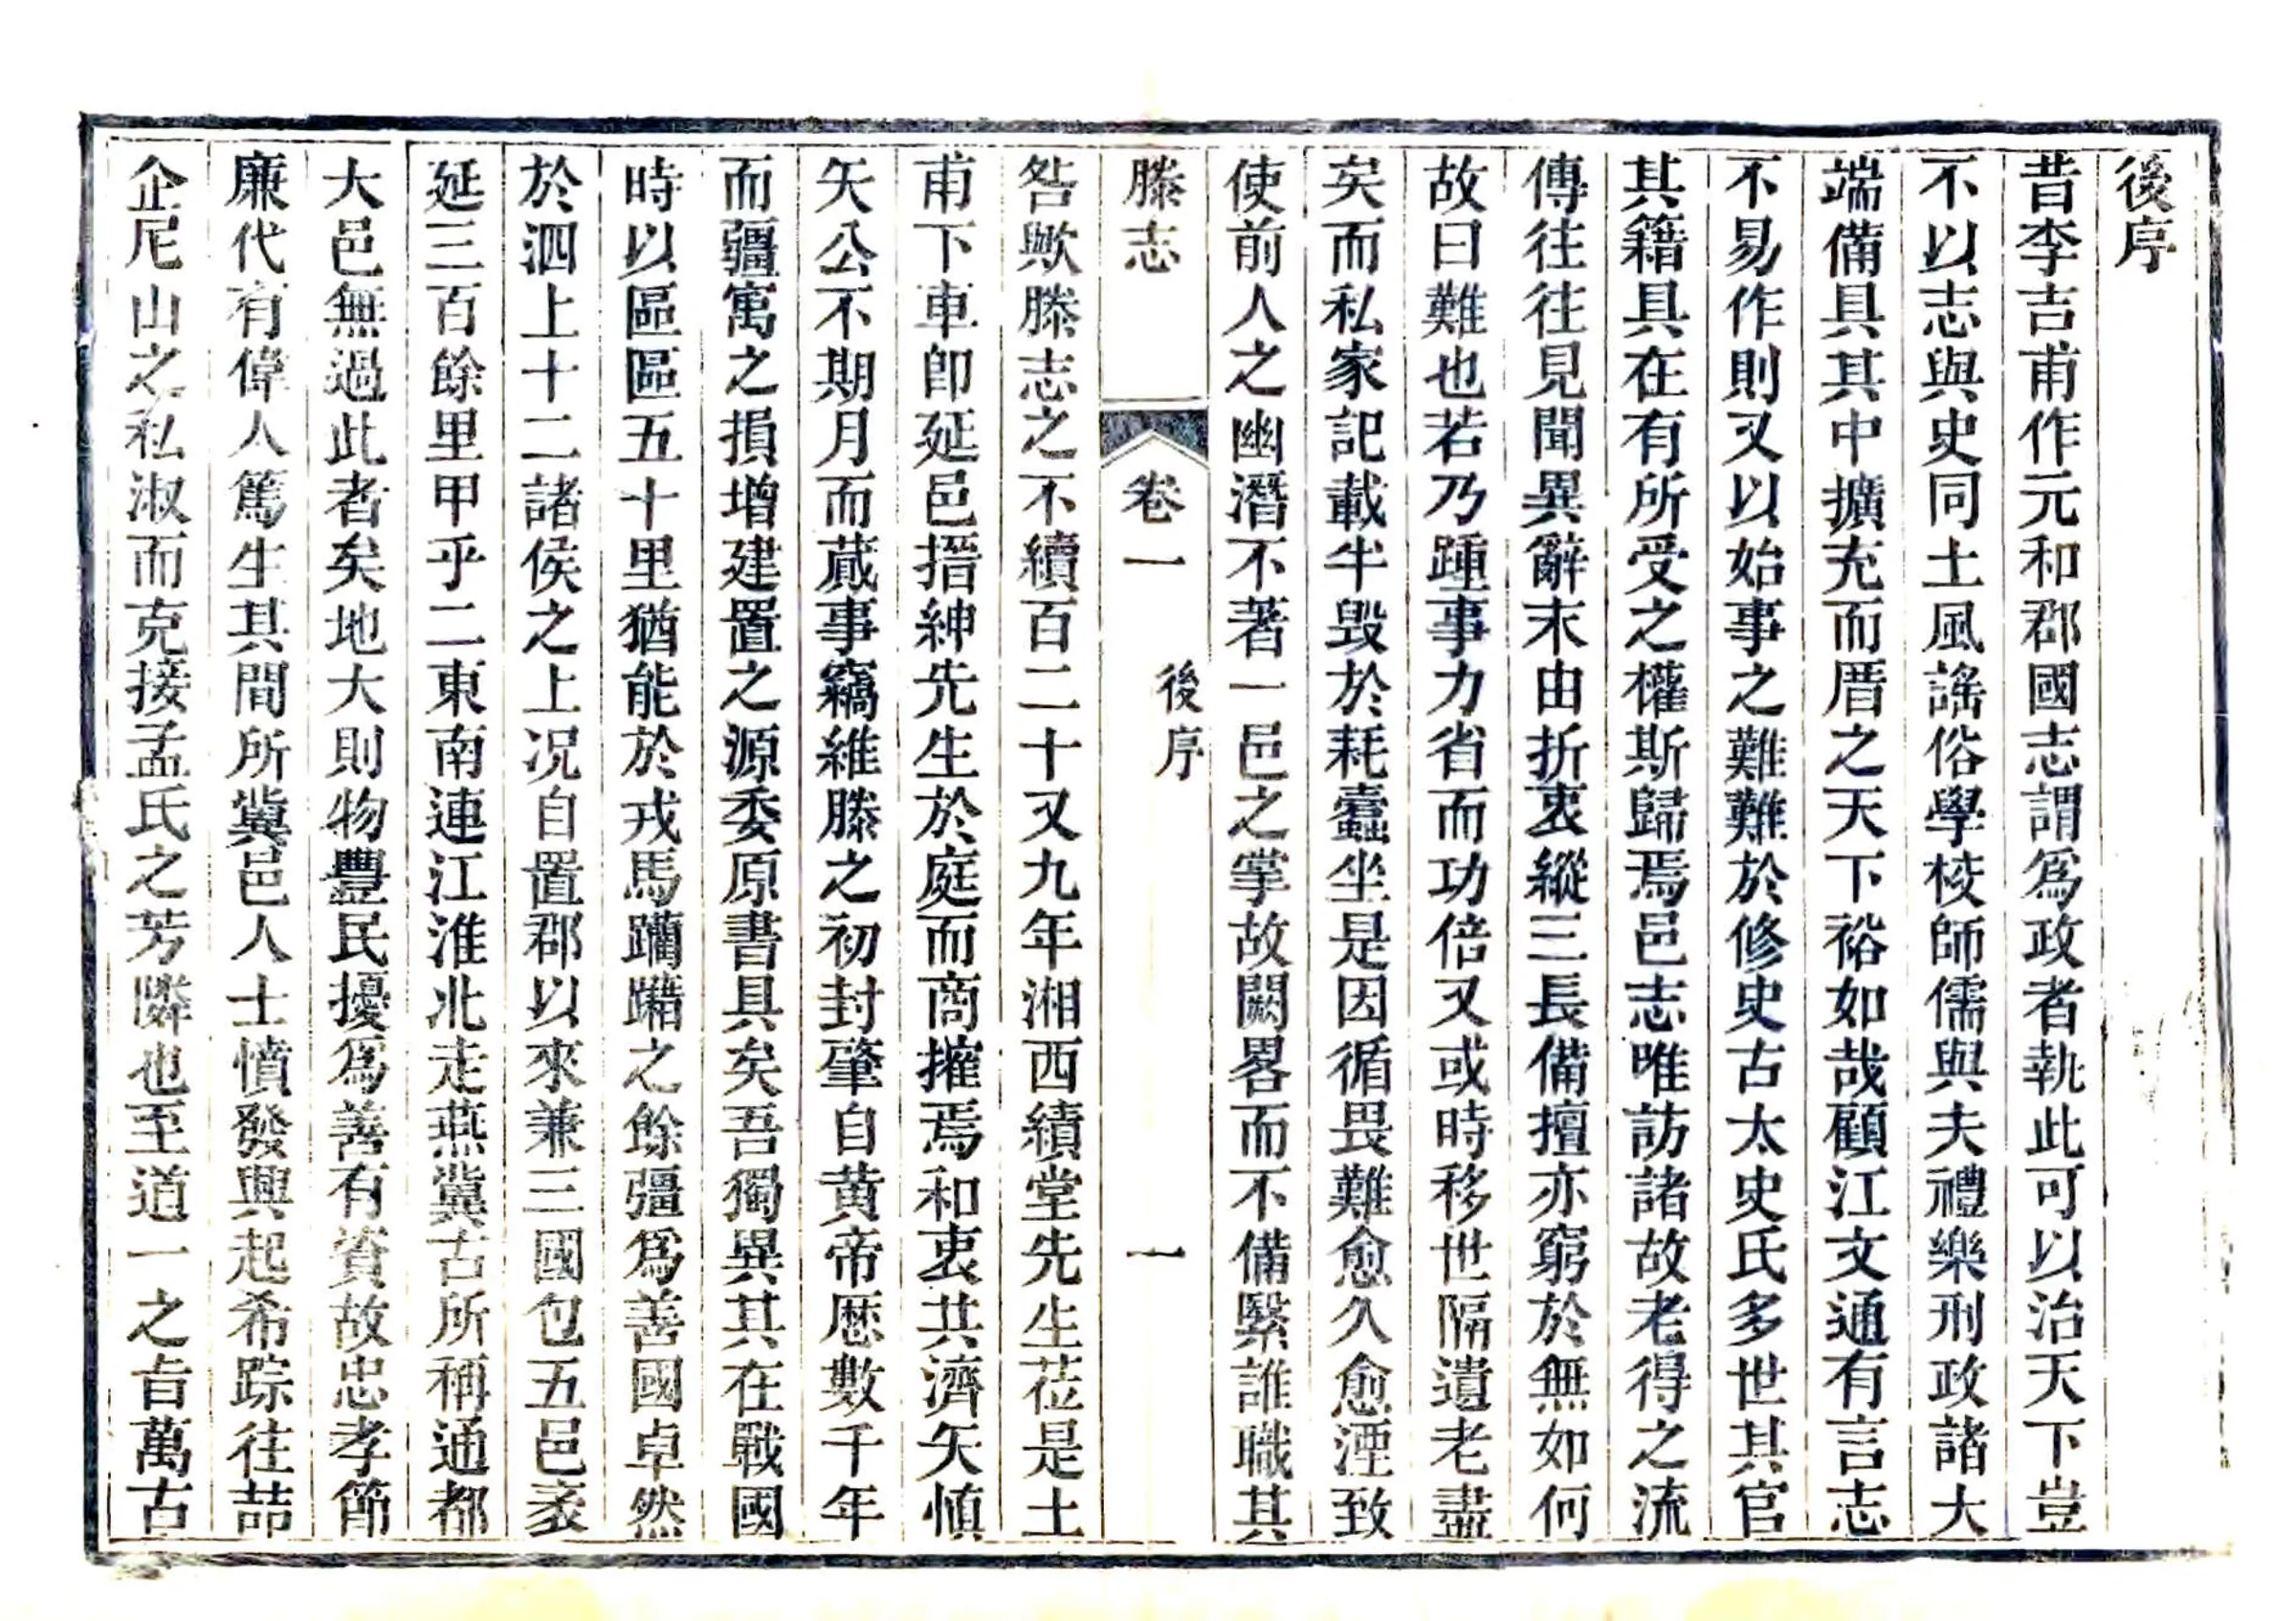 後序
昔李吉甫作元和郡國志謂爲政者執此可以治天下豈
不以志與史同土風謠俗學校師儒與夫禮樂刑政諸大
端備具其中擴充而厝之天下裕如哉顧江文通有言志
不易作則又以始事之難難於修史古太史氏多世其官
其籍具在有所受之權斯歸焉邑志唯訪諸故老得之流
傳往往見聞異辭末由折衷縱三長備擅亦窮於無如何
故曰難也若乃踵事力省而功倍又或時移世隔遺老盡
矣而私家記載半毀於耗蠹坐是因循畏難愈久愈湮致
使前人之幽潛不著一邑之掌故闕畧而不備繄誰職其
滕志 卷一 後序 一
咎歟滕志之不續百二十又九年湘西續堂先生莅是土
甫下車卽延邑搢紳先生於庭而商搉焉和衷共濟矢慎
矢公不期月而蕆事竊維滕之初封肇自黄帝厯數千年
而疆寓之損增建置之源委原書具矣吾獨異其在戰國
時以區區五十里猶能於戎馬躪躤之餘彊爲善國卓然
於泗上十二諸侯之上况自置郡以來兼三國包五邑袤
延三百餘里甲乎二東南連江淮北走燕冀古所稱通都
大邑無過此者矣地大則物豐民擾爲善有資故忠孝節
廉代有偉人篤生其間所冀邑人士憤發興起希踪往喆
企尼山之私淑而克接孟氏之芳隣也至道一之旨萬古